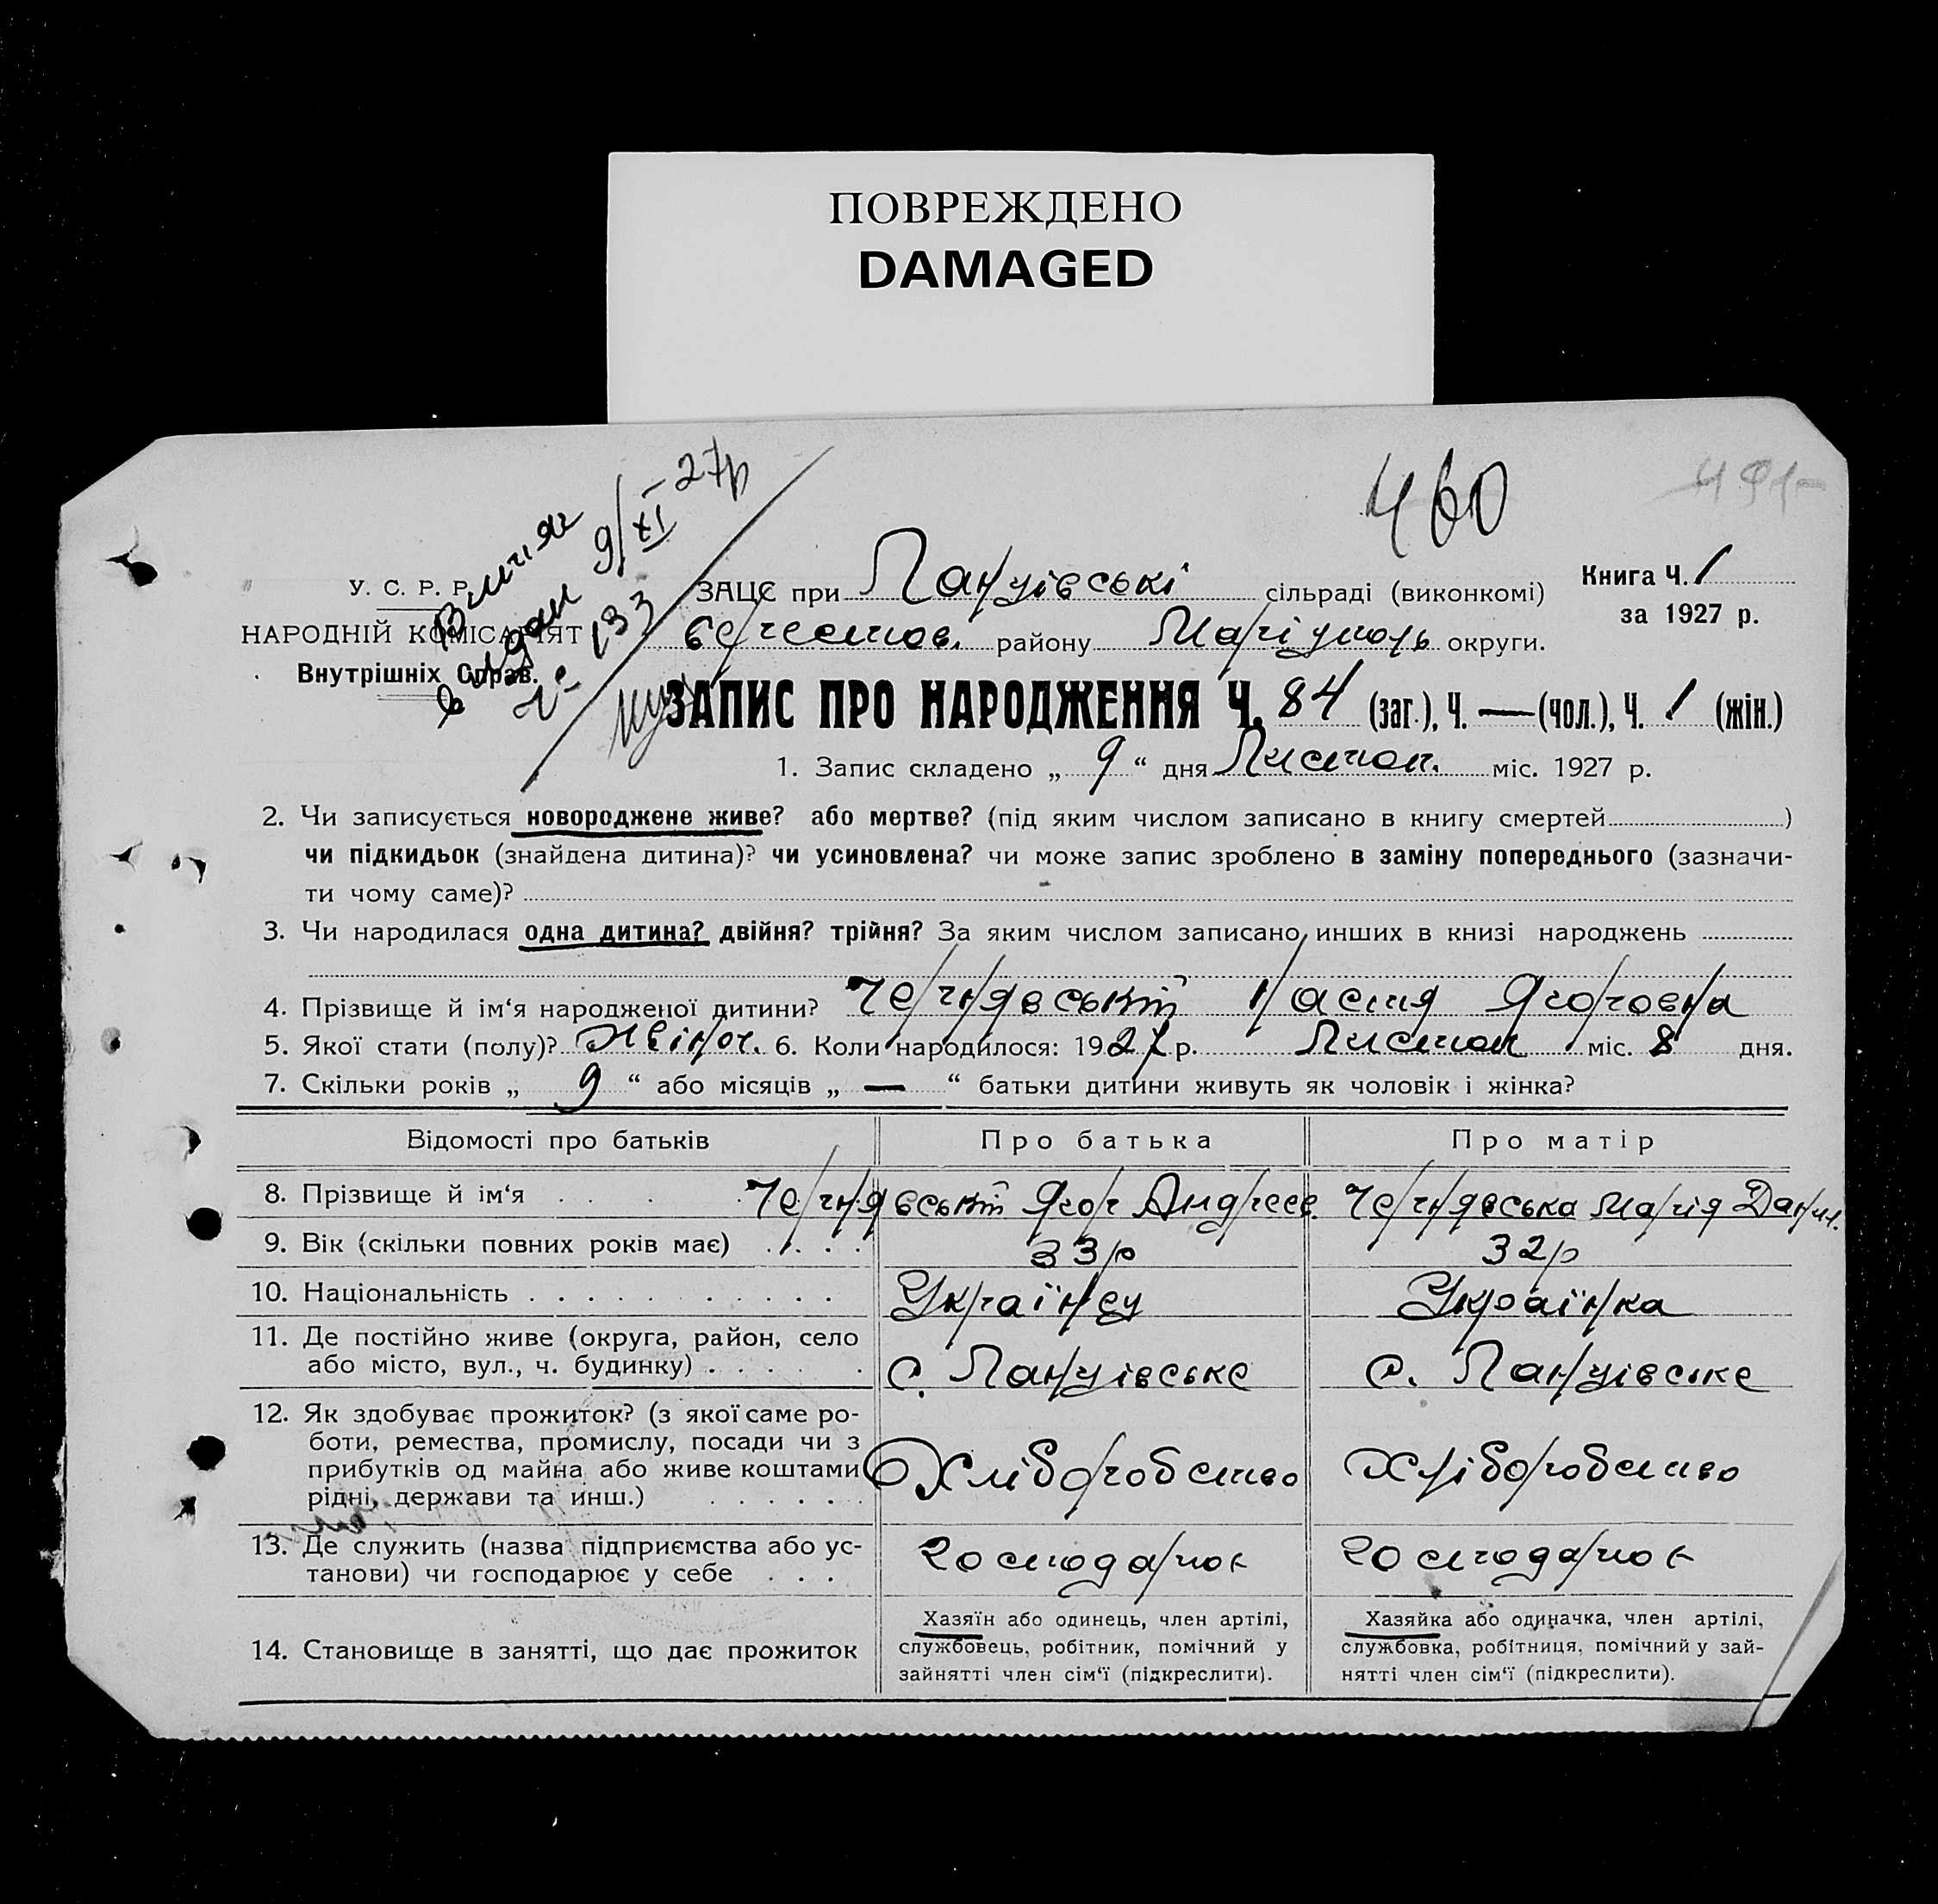 ПОВРЕЖДЕНО
DAMAGED
460
491
Витяг
видан 9/XI-27р
№ 133
У. С. Р. Р.
НАРОДНІЙ КОМІСАРІЯТ
Внутрішніх Справ.
ЗАЦС при Ланцівські сільраді (виконкомі)
Книга Ч. 1
за 1927 р.
берестов. району Маріуполь округи.
ЗАПИС ПРО НАРОДЖЕННЯ Ч. 84 (заг.), Ч. — (чол.), Ч. 1 (жін.)
1. Запис складено „ 9 “ дня Листоп. міс. 1927 р.
2. Чи записується новороджене живе? або мертве? (під яким числом записано в книгу смертей )
чи підкидьок (знайдена дитина)? чи усиновлена? чи може запис зроблено в заміну попереднього (зазначи-
ти чому саме)?
3. Чи народилася одна дитина? двійня? трійня? За яким числом записано инших в книзі народжень
4. Прізвище й ім‘я народженої дитини? Чернявський Настя Ягоровна
5. Якої стати (полу)? Жвіноч. 6. Коли народилося: 1927 р. Листоп міс. 8 дня.
7. Скільки років „ 9 “ або місяців „ — “ батьки дитини живуть як чоловік і жінка?
Відомості про батьків Про батька Про матір
8. Прізвище й ім‘я . . . . Чернявський Ягор Андреев. Чернявська Марія Данил.
9. Вік (скільки повних років має) . . . . 33р 32р
10. Національність . . . . . . . . . . . Українец Українка
11. Де постійно живе (округа, район, село
або місто, вул., ч. будинку) . . . . . с. Ланцівське с. Ланцівське
12. Як здобуває прожиток? (з якої саме ро-
боти, ремества, промислу, посади чи з
прибутків од майна або живе коштами
рідні, держави та инш.) . . . . . . Хліборобство Хліборобство
13. Де служить (назва підприємства або ус-
танови) чи господарює у себе . . . господарює господарює
14. Становище в занятті, що дає прожиток
Хазяїн або одинець, член артілі,
службовець, робітник, помічний у
зайнятті член сім‘ї (підкреслити).
Хазяйка або одиначка, член артілі,
службовка, робітниця, помічний у зай-
нятті член сім‘ї (підкреслити).